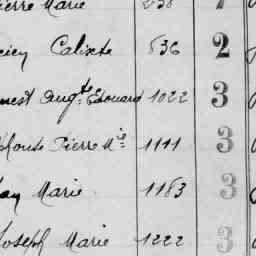 Pierre Marie 238 1
Calixte 636 2
Ernest Augte Edouard 1022 3
Alphonse Pierre Mie 1111 3
Jean Marie 1183 3
Joseph Marie 1222 3